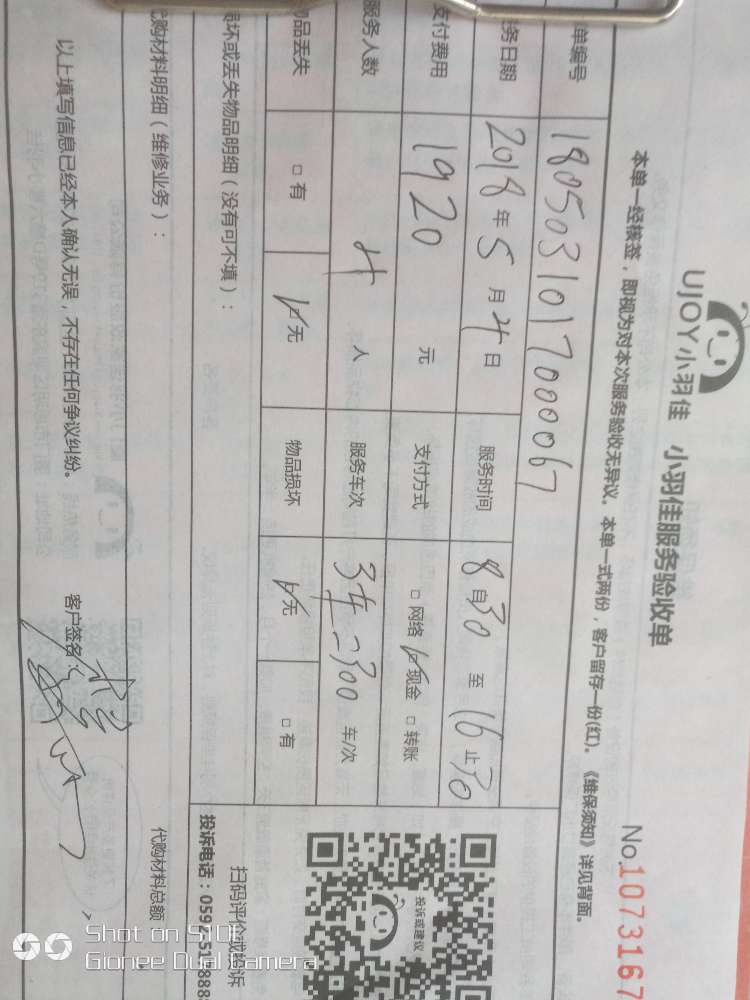 UJOY小羽佳 小羽佳服务验收单
No.1073167
本单一经核签，即视为对本次服务验收无异议。本单一式两份，客户留存一份(红)。《维保须知》详见背面。
单编号 1805031017000067
务日期 2018年5月4日 服务时间 8自30至16止30
支付费用 1920元 支付方式 □网络 ☑现金 □转账
服务人数 4人 服务车次 车/次
物品丢失 □有 ☑无 物品损坏 ☑无 □有
损坏或丢失物品明细（没有可不填）：
代购材料明细（维修业务）：
代购材料总额
以上填写信息已经本人确认无误，不存在任何争议纠纷。 客户签名：
投诉或建议
扫码评价或投诉
投诉电话：
Shot on S10
Gionee Dual Camera